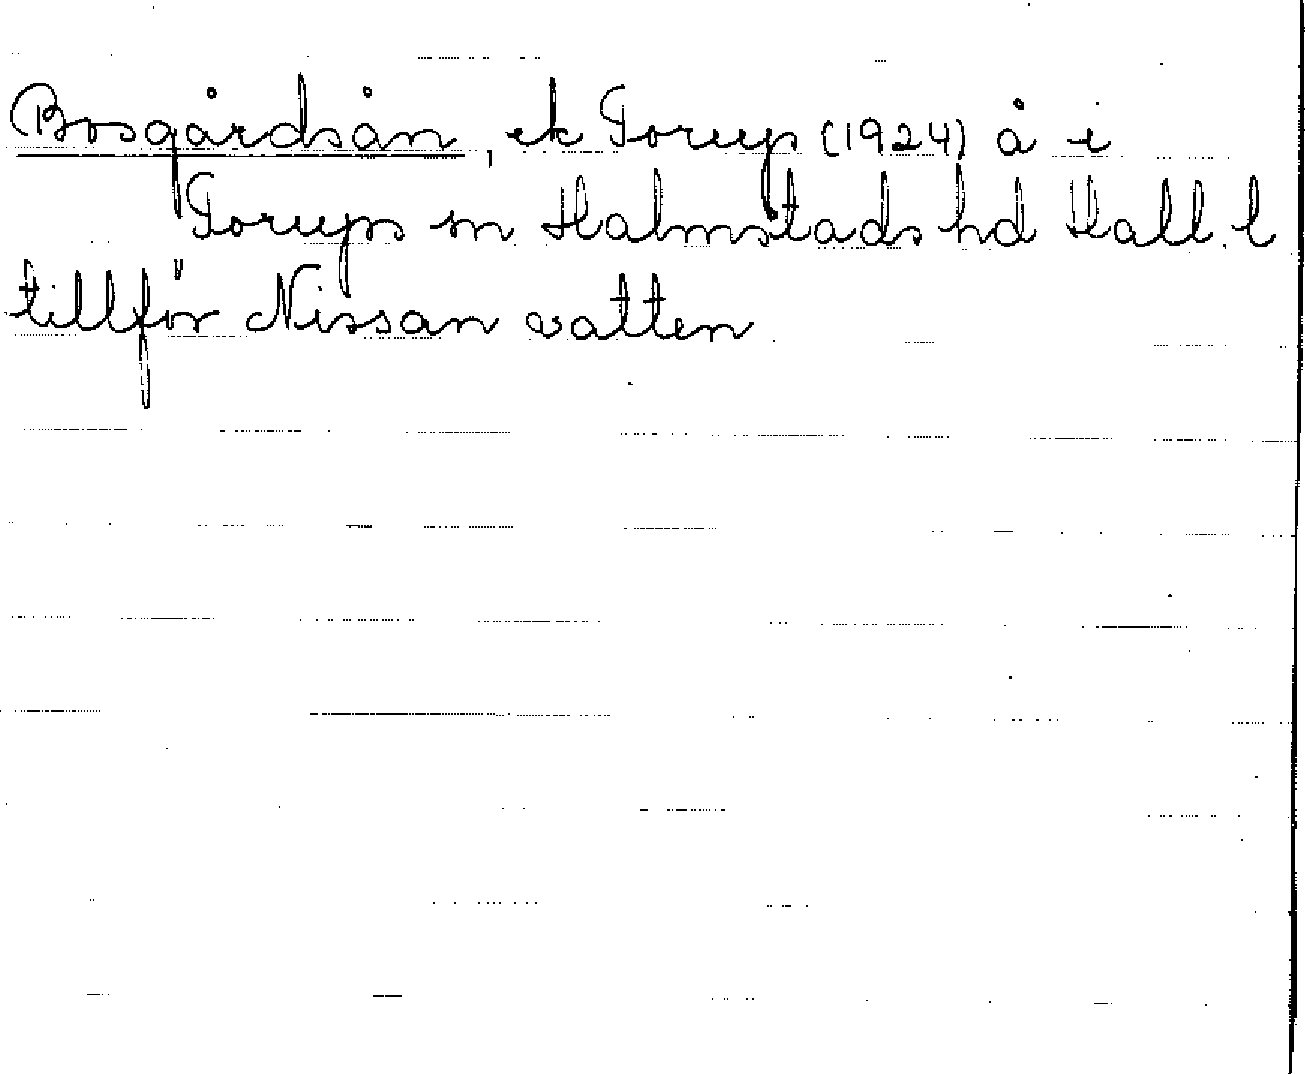 Bosgårdsån, ek Torup (1924) å i
Torups sn Halmstads hd Hall. l
tillför Nissan vatten